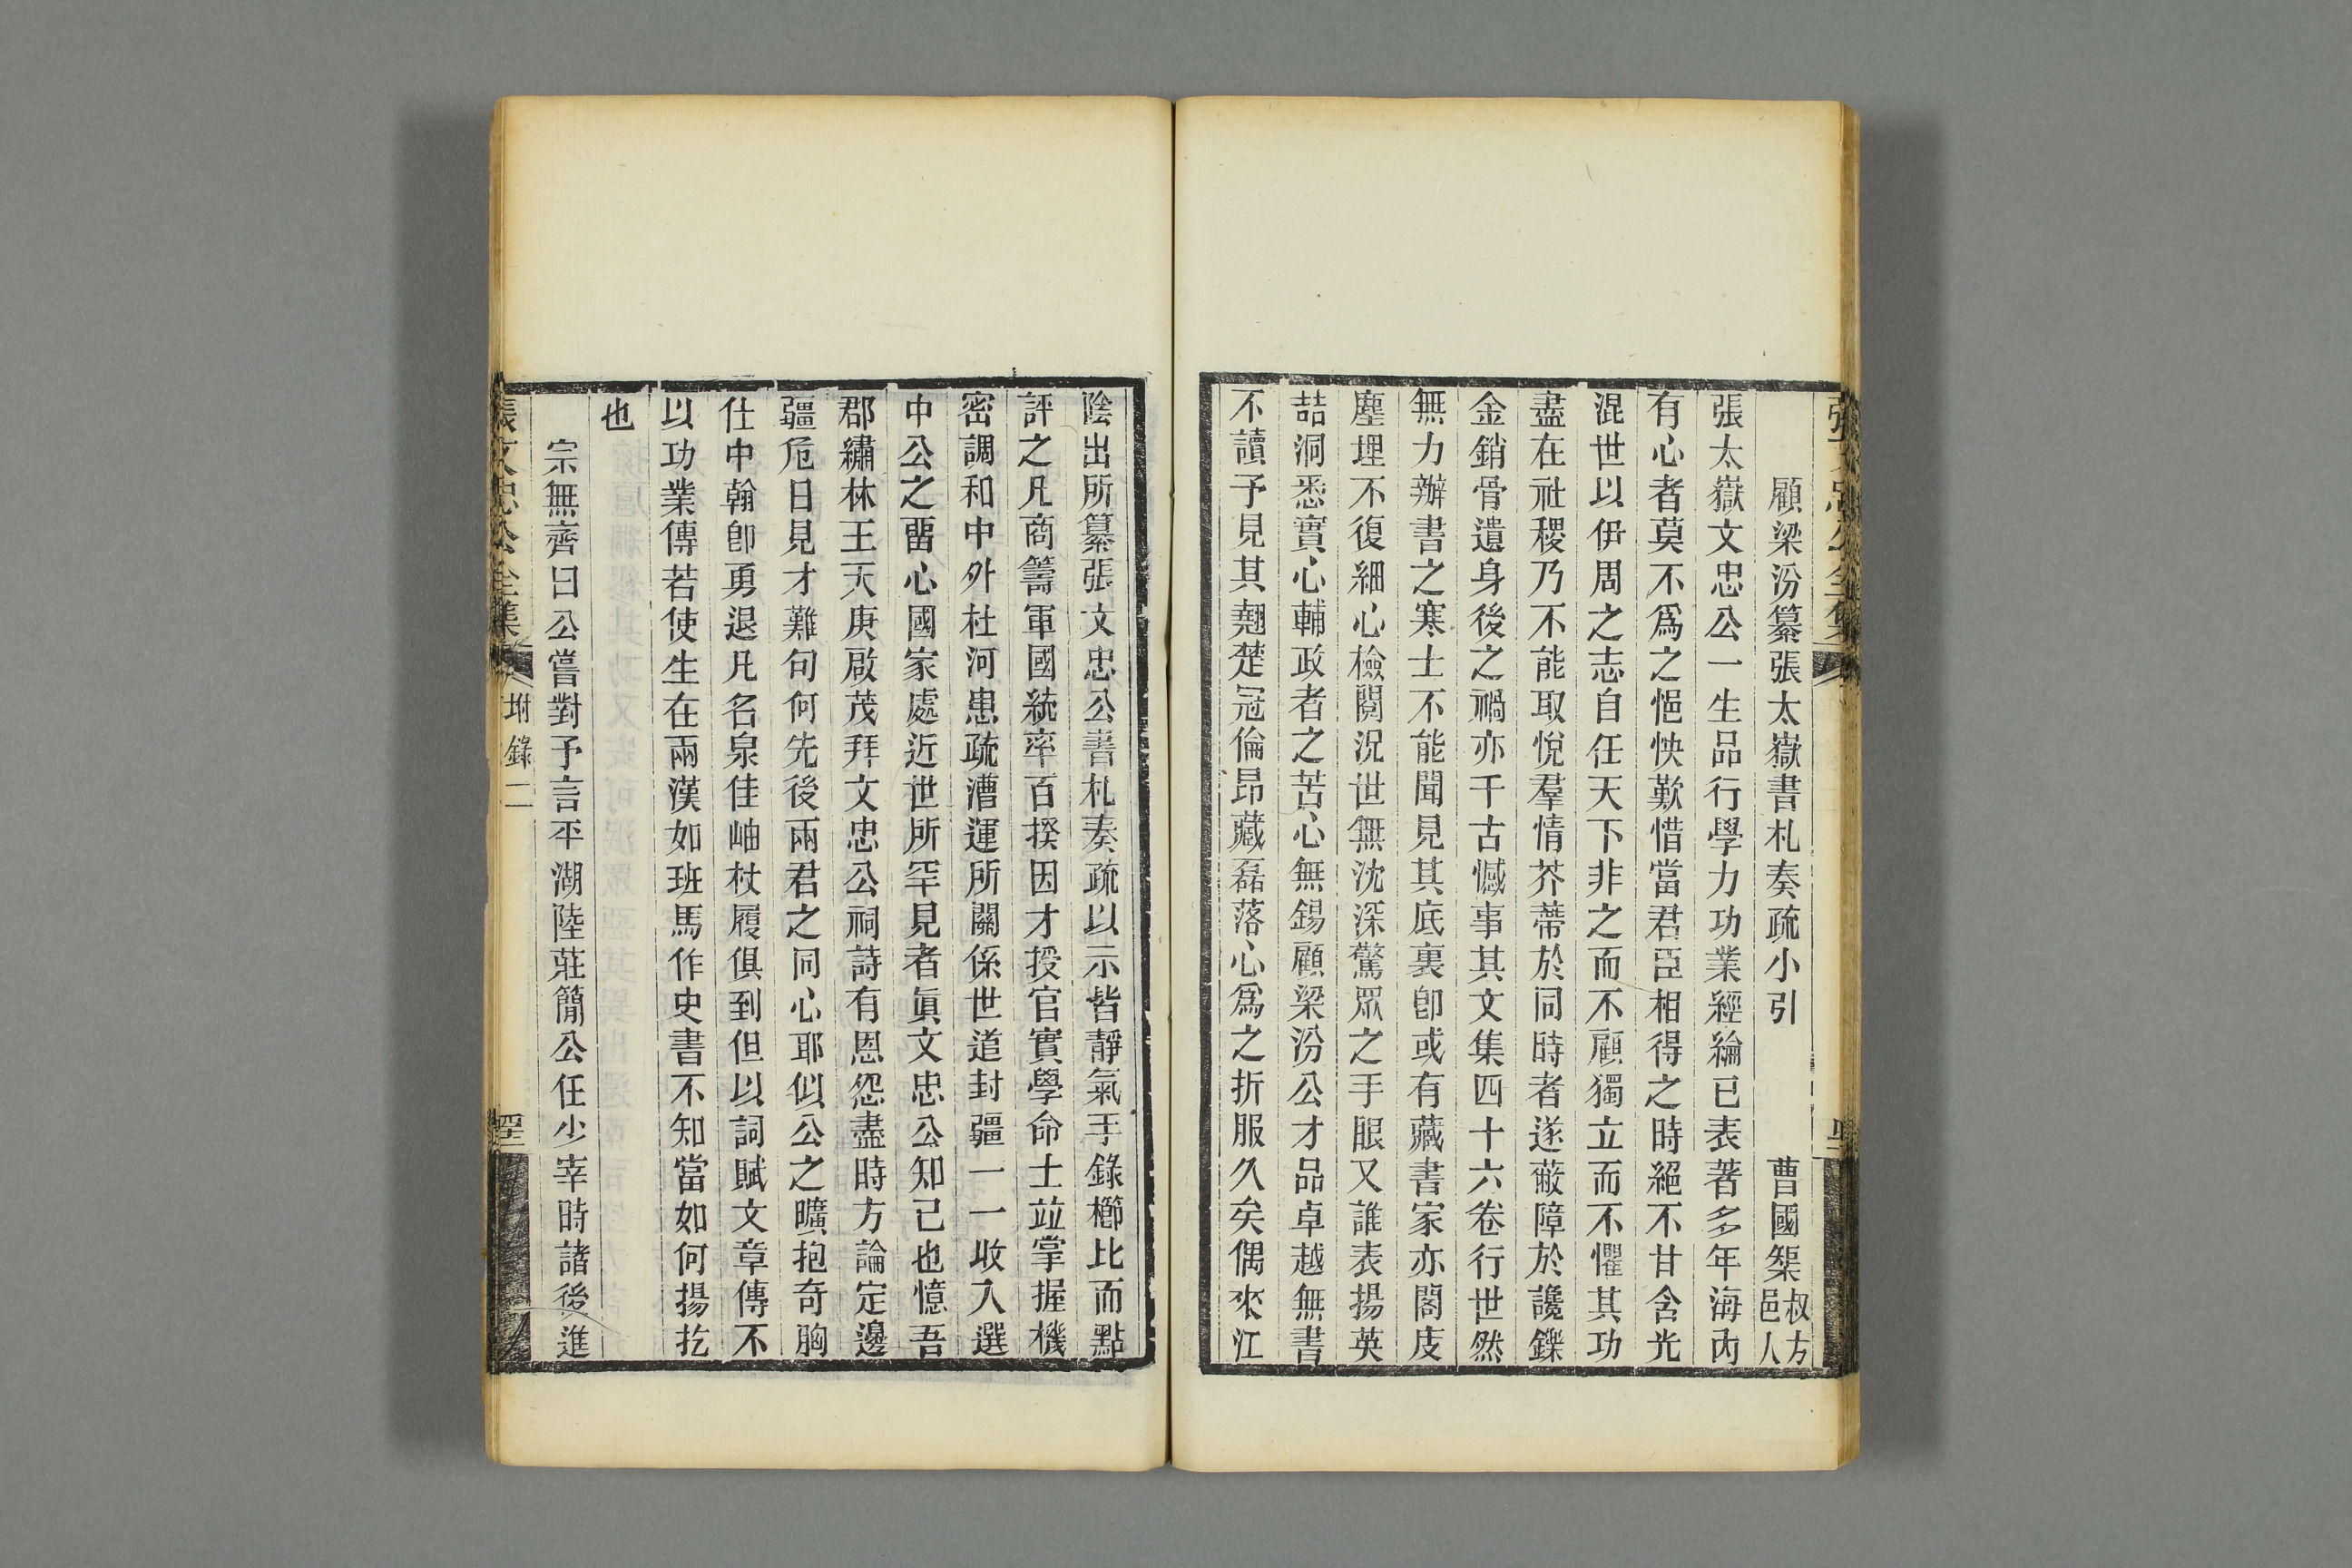 顧梁汾纂張太嶽書札奏疏小引 曹國榘叔方邑人
張太嶽文忠公一生品行學力功業經綸已表著多年海內
有心者莫不爲之悒怏歎惜當君臣相得之時絕不甘含光
混世以伊周之志自任天下非之而不顧獨立而不懼其功
盡在社稷乃不能取悅羣情芥蔕於同時者遂蔽障於讒鑠
金銷骨遺身後之禍亦千古憾事其文集四十六卷行世然
無力辦書之寒士不能聞見其底裏卽或有藏書家亦閣庋
塵埋不復細心檢閱況世無沈深驚眾之手眼又誰表揚英
喆洞悉實心輔政者之苦心無錫顧梁汾公才品卓越無書
不讀予見其翹楚冠倫昂藏磊落心爲之折服久矣偶來江
陰出所纂張文忠公書札奏疏以示皆靜氣手錄櫛比而點
評之凡商籌軍國統率百揆因才授官實學命士竝掌握機
密調和中外杜河患疏漕運所關係世道封疆一一收入選
中公之畱心國家處近世所罕見者眞文忠公知己也憶吾
郡繡林王天庚啟茂拜文忠公祠詩有恩怨盡時方論定邊
疆危日見才難句何先後兩君之同心耶似公之曠抱奇胸
仕中翰卽勇退凡名泉佳岫杖履俱到但以詞賦文章傳不
以功業傳若使生在兩漢如班馬作史書不知當如何揚扢
也
宗無齊曰公嘗對予言平湖陸莊簡公任少宰時諸後進
張文忠公全集 坿錄二